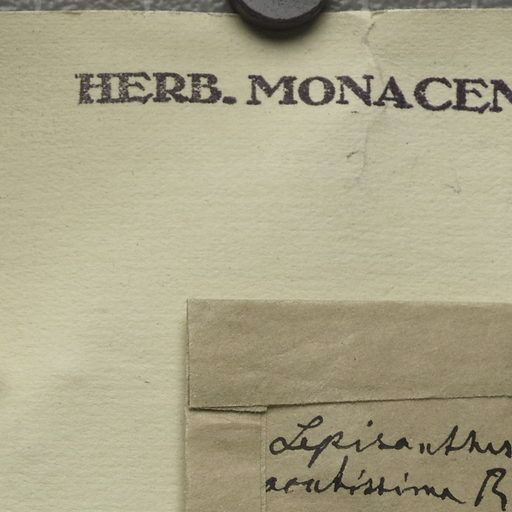 HERB. MONACEN
Lepisanthes
acutissima R